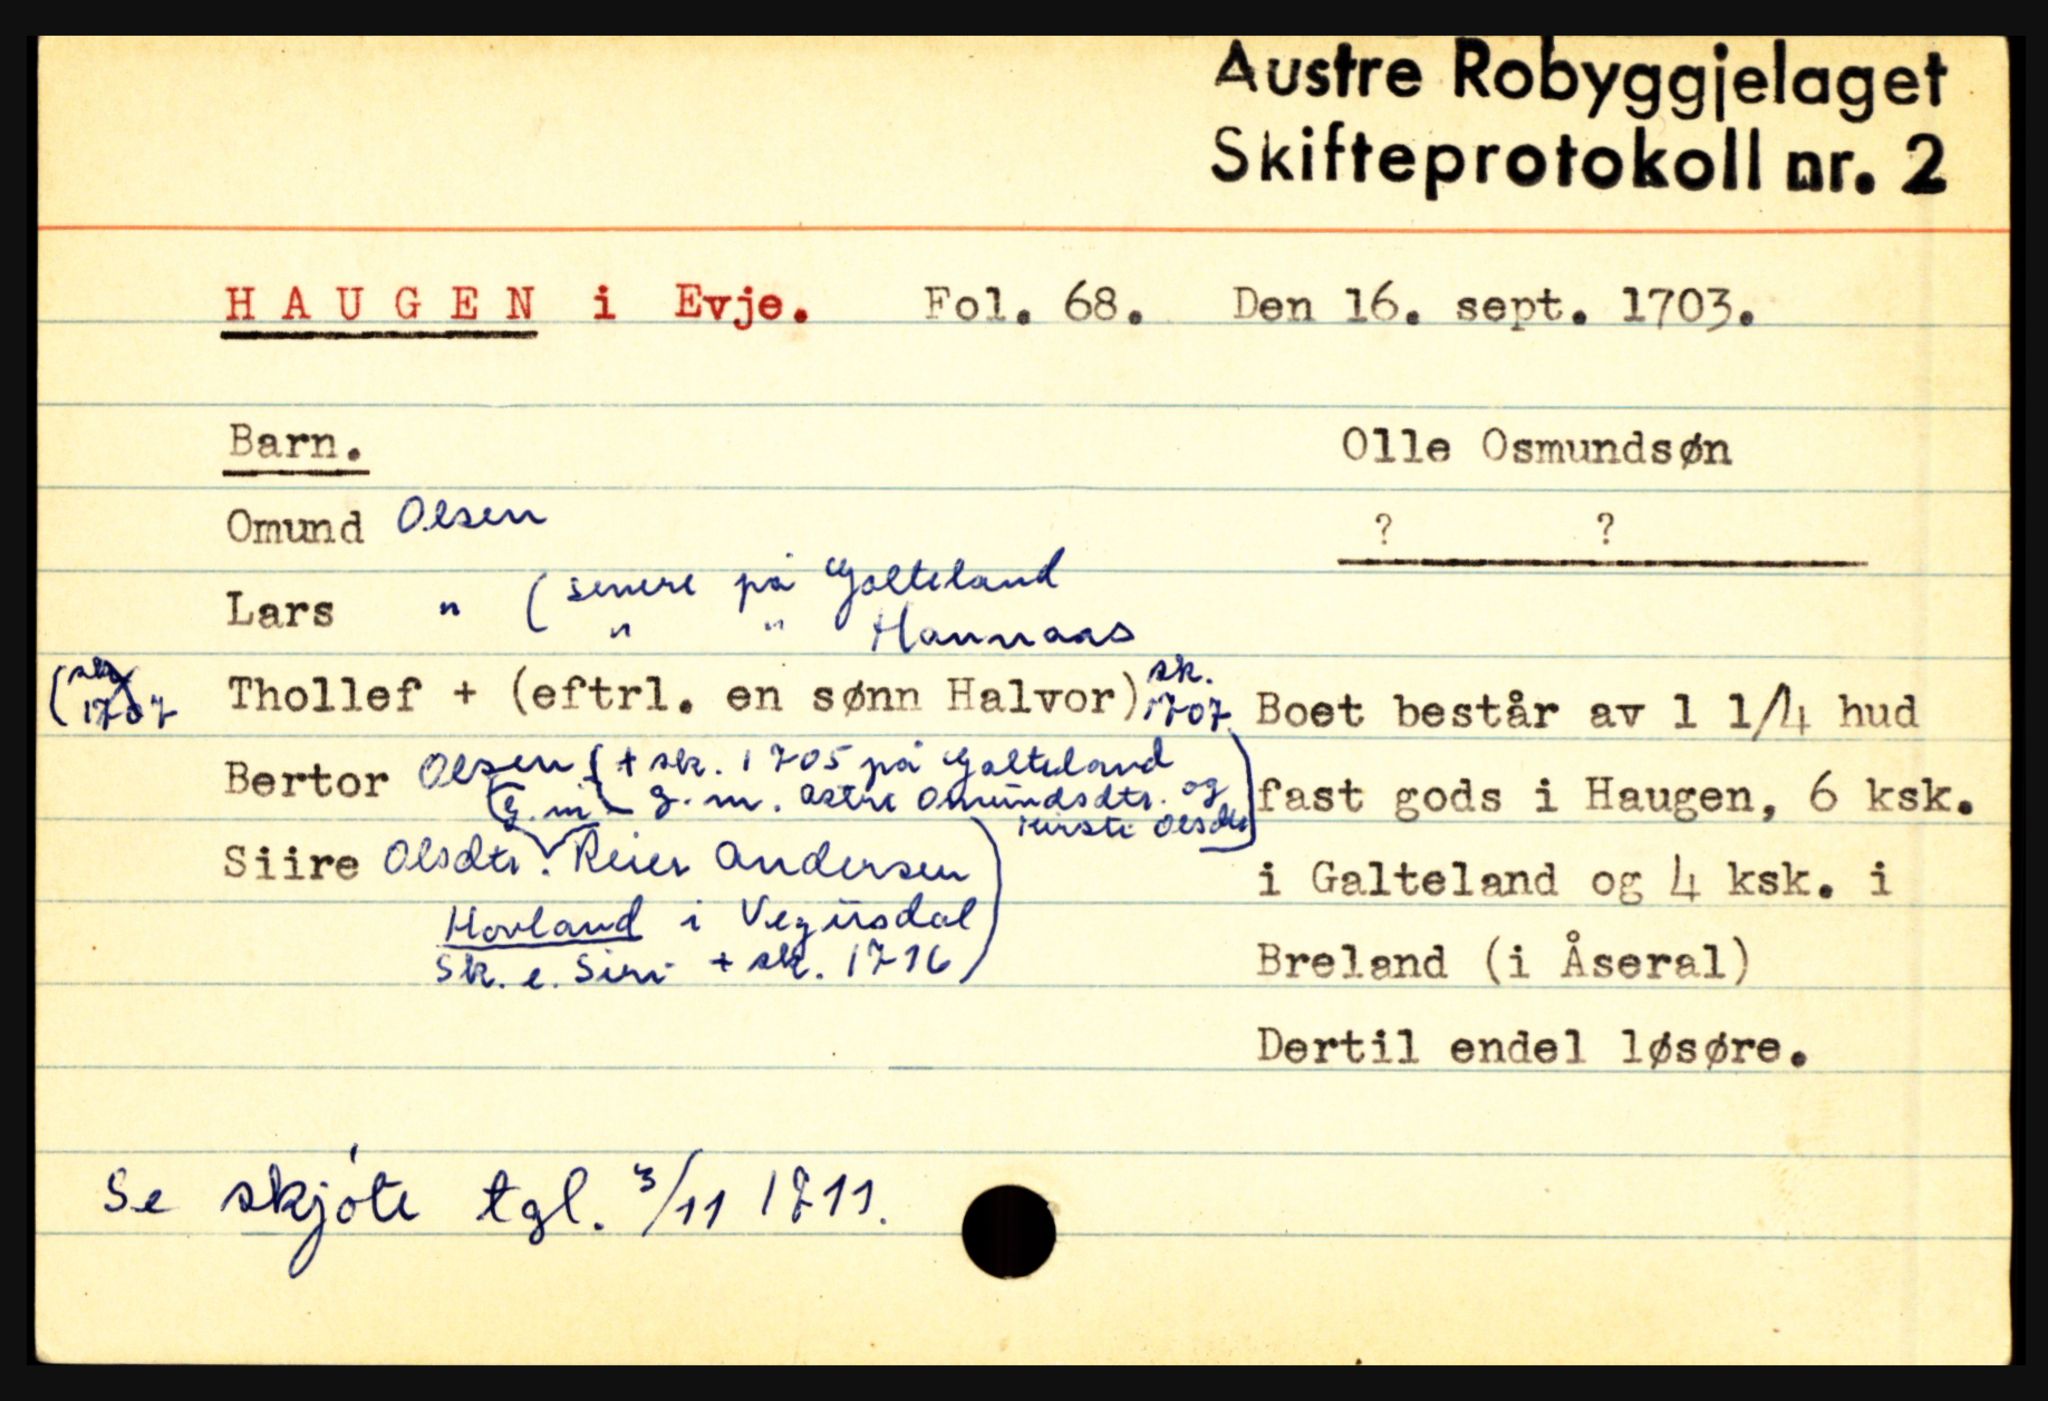 Austre Robyggjelaget
Skifteprotokoll nr. 2
HAUGEN i Evje. Fol. 68. Den 16. sept. 1703.
Barn.
Olle Osmundsøn
Omund Olsen
? ?
Lars " (senere på Galteland
" " Hannaas
(sk. 1707
Thollef + (eftrl. en sønn Halvor) sk. 1707
Bertor Olsen (+ sk. 1705 på Galteland
g.m. g.m. Astri Omundsdtr. og
Kirsti Olsdtr)
Siire Olsdtr. Reier Andersen
Hovland i Vegusdal
Sk. e. Siri + sk. 1716)
Boet består av 1 1/4 hud
fast gods i Haugen, 6 ksk.
i Galteland og 4 ksk. i
Breland (i Åseral)
Dertil endel løsøre.
Se skjøte tgl. 3/11 1711.